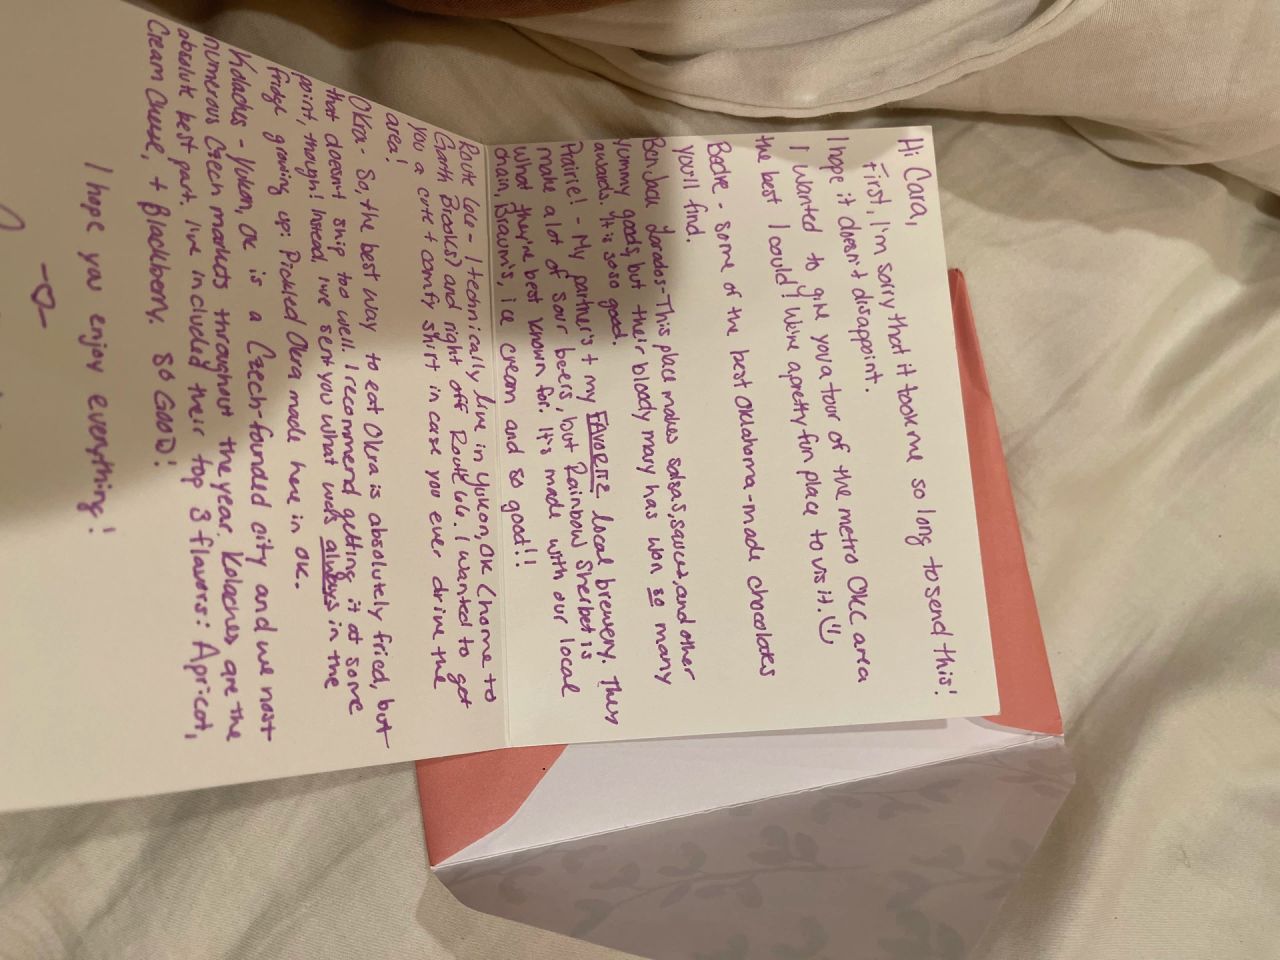 Hi Cara,
First, I'm sorry that it took me so long to send this!
I hope it doesn't disappoint.
I wanted to give you a tour of the metro OKC area
the best I could! We're a pretty fun place to visit.
Bedre - some of the best Oklahoma-made chocolates
you'll find.
Ben Jack Larados - This place makes salsas, sauces, and other
yummy goods, but their bloody mary has won so many
awards. It is so so good.
Prairie! - My partner's + my FAVORITE local brewery. They
make a lot of sour beers, but Rainbow Sherbet is
what they're best known for. It's made with our local
chain, Braum's, ice cream and so good!!
Route 66 - I technically live in Yukon, OK (home to
Garth Brooks) and right off Route 66. I wanted to get
you a cute + comfy shirt in case you ever drive the
area!
Okra - So, the best way to eat Okra is absolutely fried, but
that doesn't ship too well. I recommend getting it at some
point, though! Instead, I've sent you what was always in the
fridge growing up: Pickled Okra made here in OK.
Kolaches - Yukon, OK is a Czech-founded city and we host
numerous Czech markets throughout the year. Kolaches are the
absolute best part. I've included their top 3 flavors: Apricot,
Cream Cheese, + Blackberry. SO GOOD!
I hope you enjoy everything!